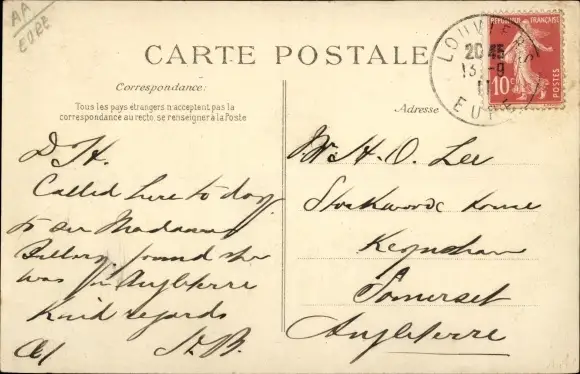 AA
EURE
CARTE POSTALE
Correspondance:
Tous les pays étrangers n'acceptent pas la
correspondance au recto, se renseigner à la Poste
Adresse
RÉPUBLIQUE FRANÇAISE
10c
POSTES
LOUVIERS
20 45
13-9
11
EURE
D H.
Called here to day
to see Madame
found she
was in Angleterre
Kind regards
H.B.
Mr H. O. Lee
Stockwood House
Keynsham
Somerset
Angleterre